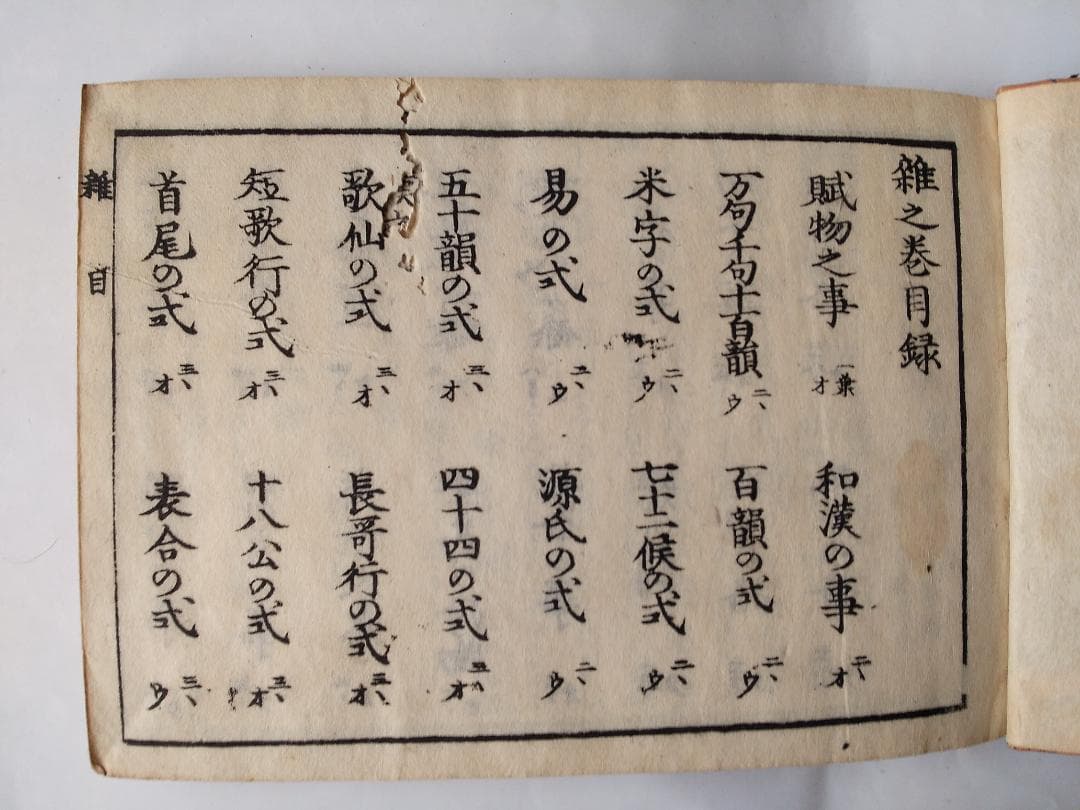 雜之巻目録
賦物之事 一兼オ
和漢の事 二オ
万句千句十百韻 二、ウ
百韻の式 二、ウ
米字の式 二、ウ
七十二候の式 二、ウ
易の式 二、ウ
源氏の式 二、ウ
五十韻の式 三、オ
四十四の式 三、オ
歌仙の式 三、オ
長哥行の式 三、オ
短歌行の式 三、オ
十八公の式 三、オ
首尾の式 三、オ
表合の式 三、ウ
雜 目